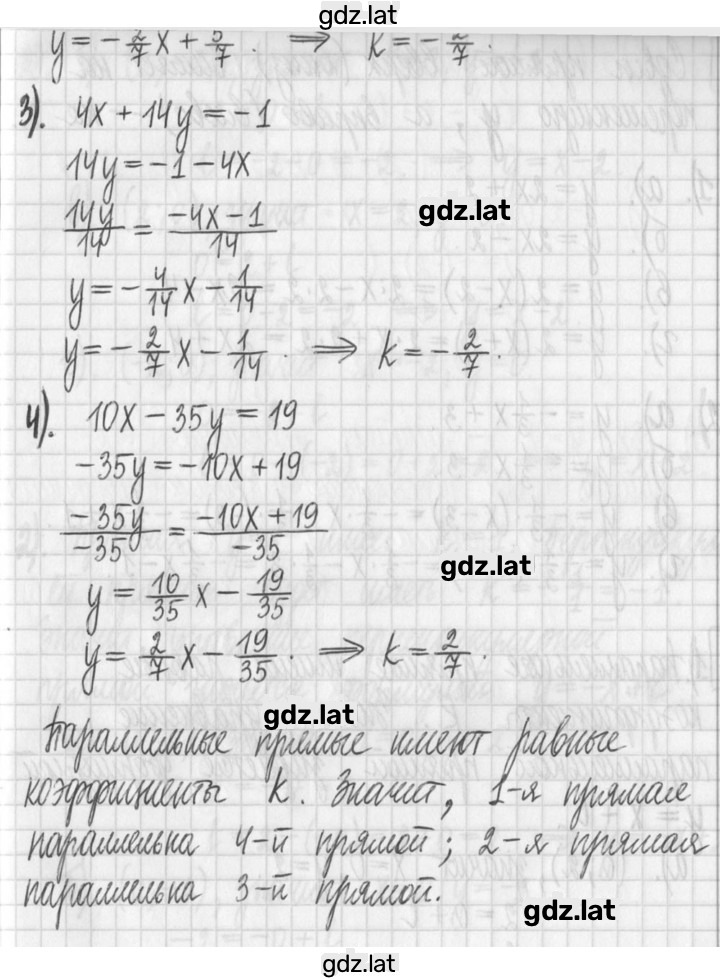 gdz.lat
y = -2/7 x + 5/7. ⇒ k = -2/7.
3). 4x + 14y = -1
14y = -1 - 4x
14y/14 = (-4x - 1)/14
gdz.lat
y = -4/14 x - 1/14
y = -2/7 x - 1/14. ⇒ k = -2/7.
4). 10x - 35y = 19
-35y = -10x + 19
-35y/-35 = (-10x + 19)/-35
gdz.lat
y = 10/35 x - 19/35
y = 2/7 x - 19/35. ⇒ k = 2/7.
gdz.lat
Параллельные прямые имеют равные
коэффициенты k. Значит, 1-я прямая
параллельна 4-й прямой; 2-я прямая
параллельна 3-й прямой.
gdz.lat
gdz.lat